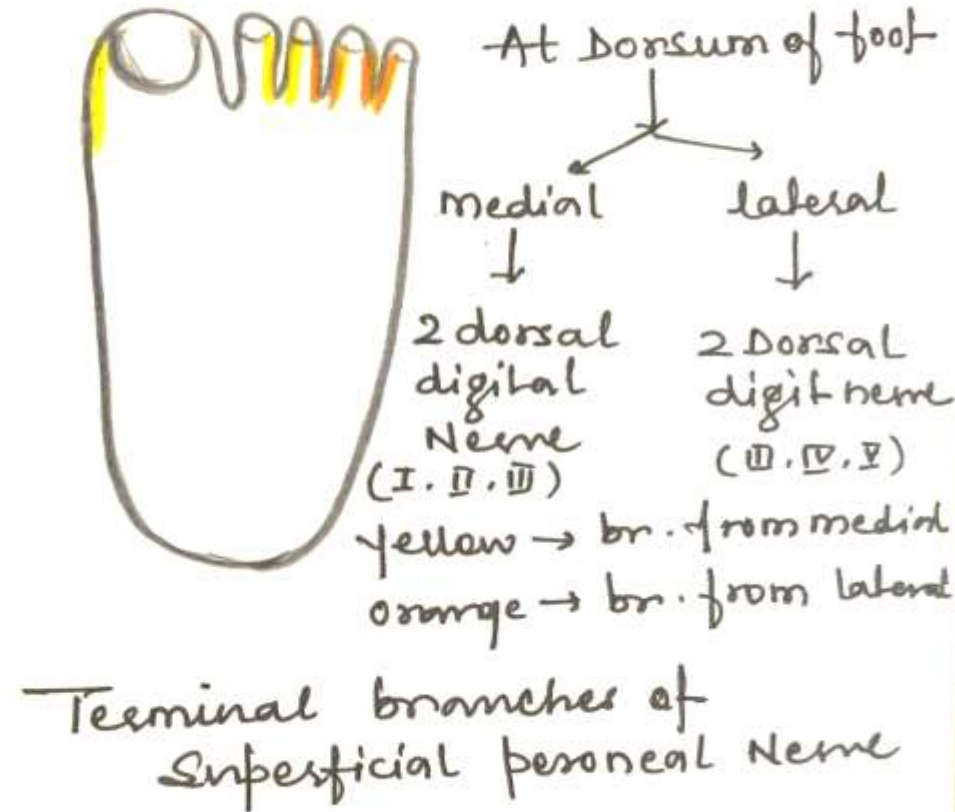 At Dorsum of foot
medial
lateral
2 dorsal
digital
Nerve
(I. II. III)
2 Dorsal
digit nerve
(III. IV. V)
yellow → br. from medial
orange → br. from lateral
Terminal branches of
Superficial peroneal Nerve